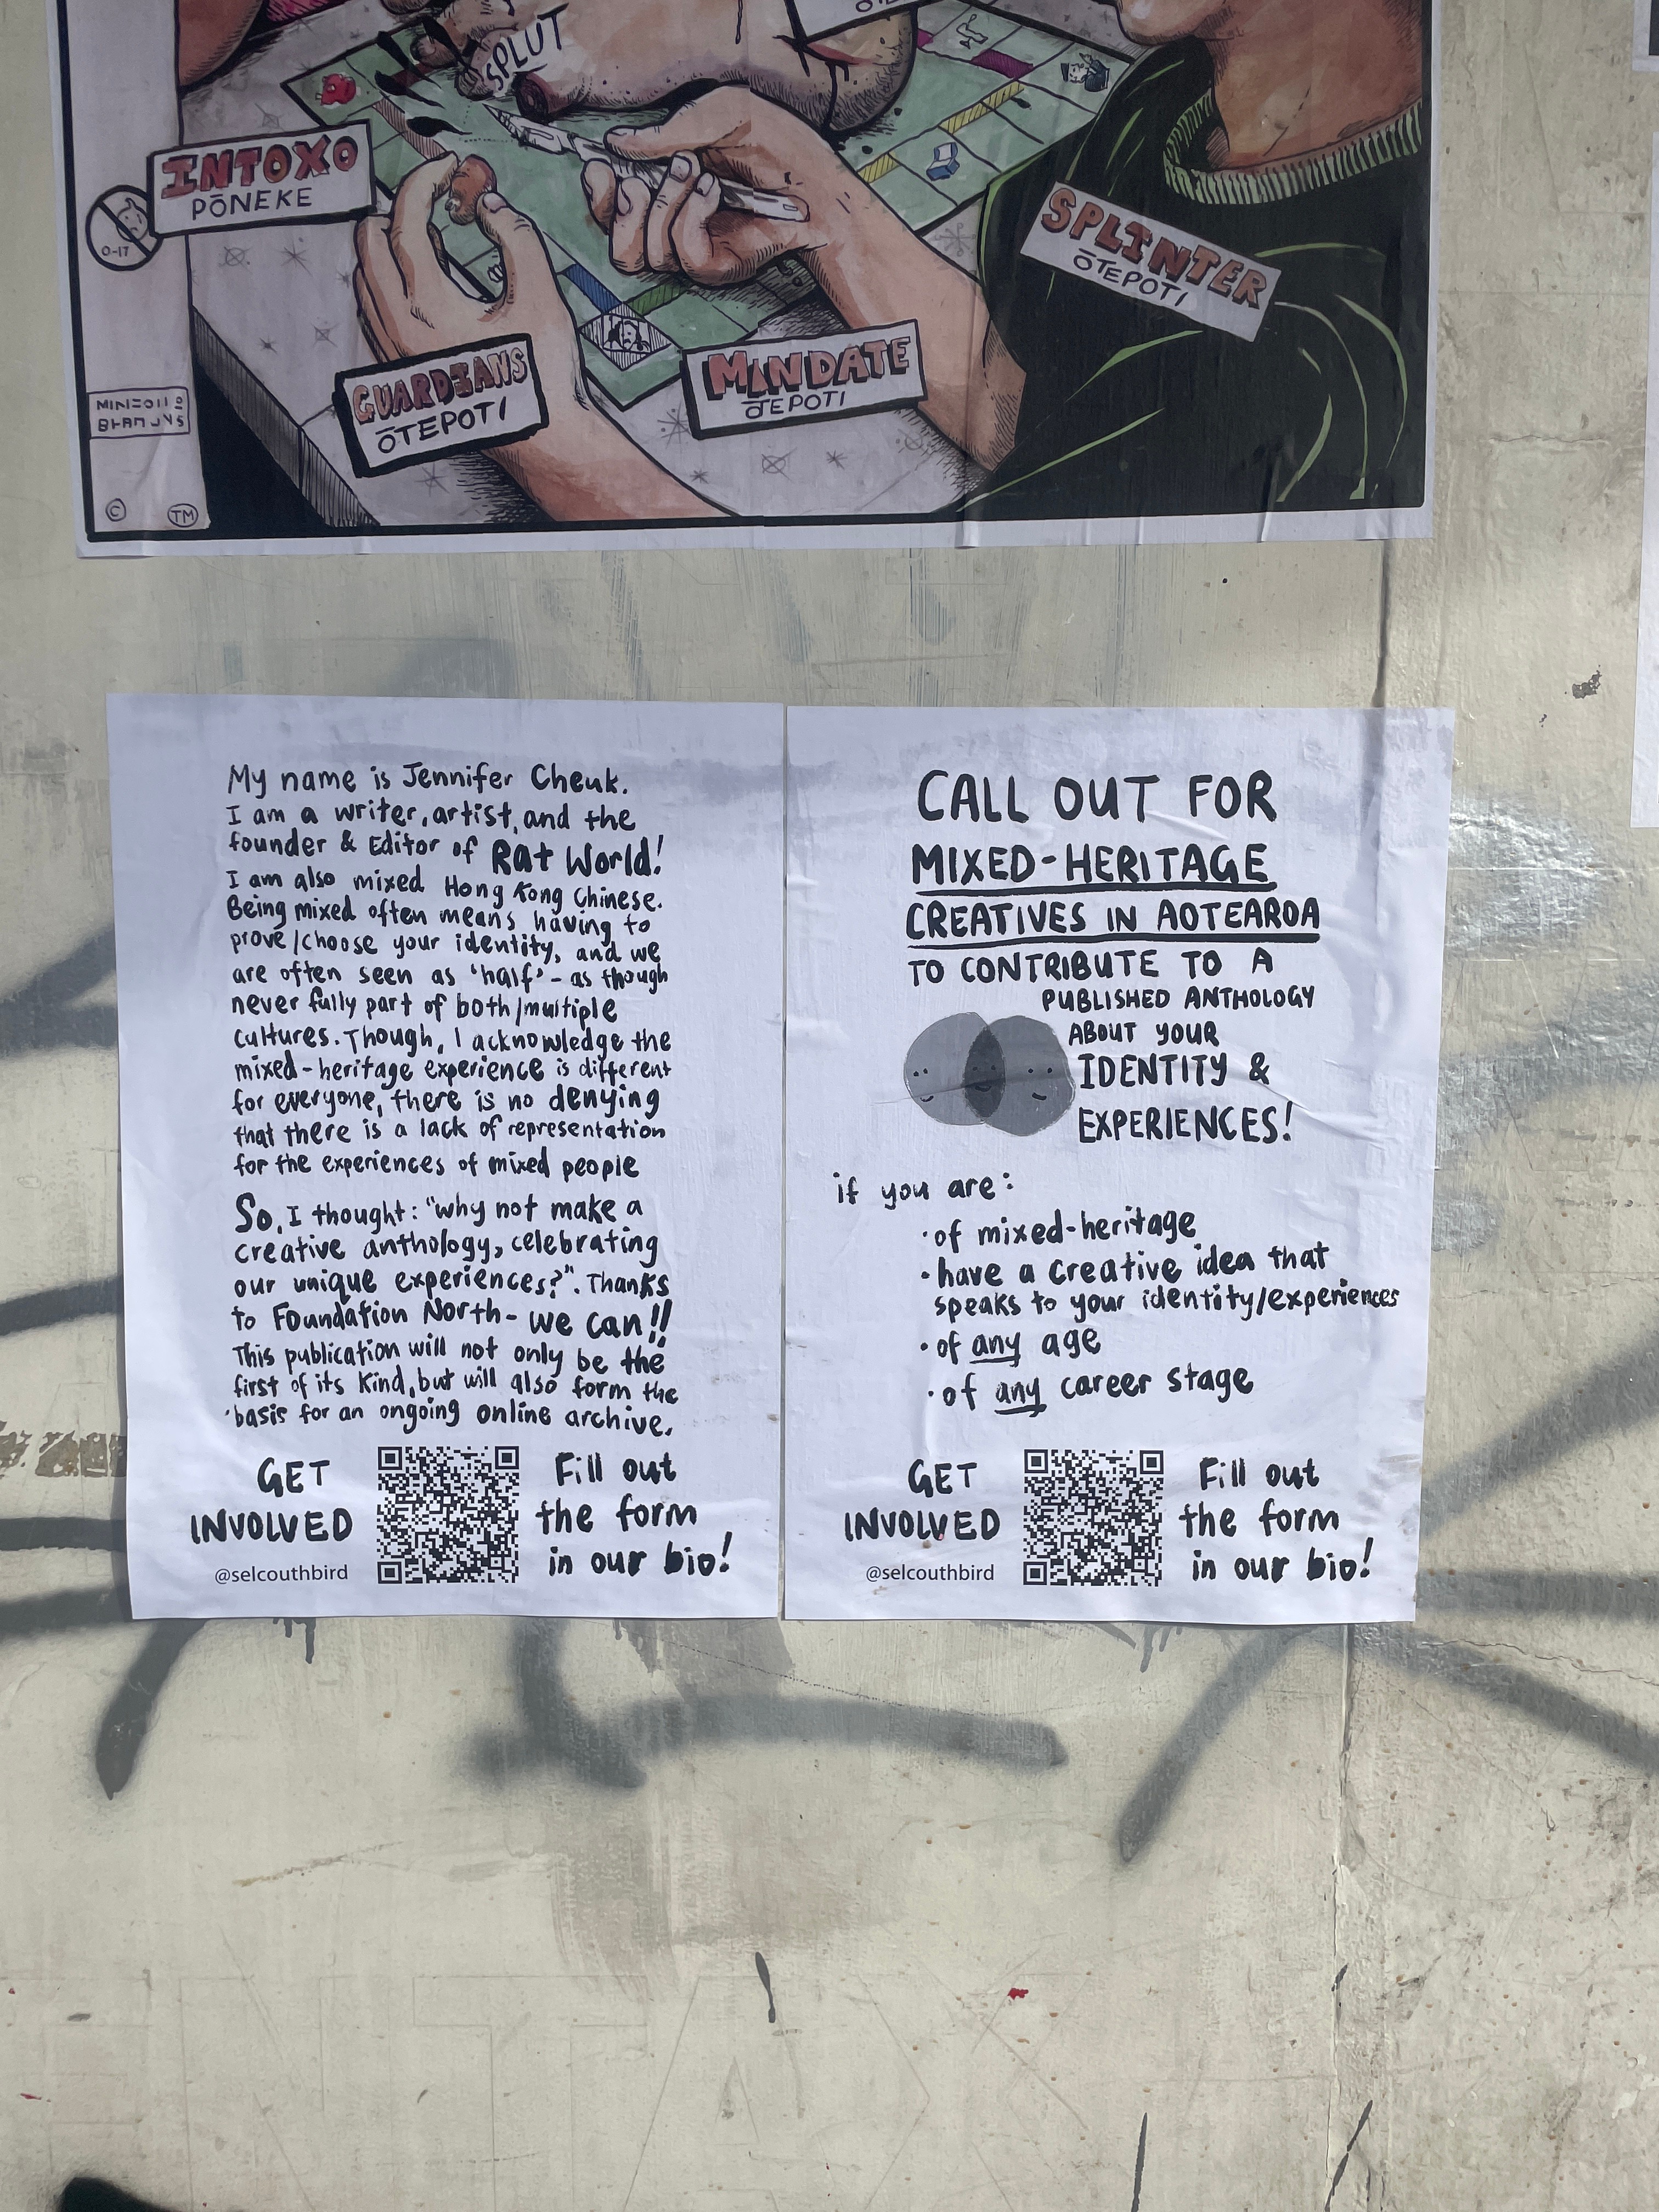 SPLUT
INTOXO
PŌNEKE
0-17
SPLINTER
ŌTEPOTI
GUARDIANS
ŌTEPOTI
MANDATE
ŌTEPOTI
©
TM
My name is Jennifer Cheuk.
I am a writer, artist, and the
founder & Editor of Rat World!
I am also mixed Hong Kong Chinese.
Being mixed often means having to
prove/choose your identity, and we
are often seen as 'half' - as though
never fully part of both/multiple
cultures. Though, I acknowledge the
mixed-heritage experience is different
for everyone, there is no denying
that there is a lack of representation
for the experiences of mixed people
So, I thought: "why not make a
creative anthology, celebrating
our unique experiences?". Thanks
to Foundation North - we can!!
This publication will not only be the
first of its kind, but will also form the
basis for an ongoing online archive.
GET
INVOLVED
@selcouthbird
Fill out
the form
in our bio!
CALL OUT FOR
MIXED-HERITAGE
CREATIVES IN AOTEAROA
TO CONTRIBUTE TO A
PUBLISHED ANTHOLOGY
ABOUT YOUR
IDENTITY &
EXPERIENCES!
if you are:
· of mixed-heritage
· have a creative idea that
speaks to your identity/experiences
· of any age
· of any career stage
GET
INVOLVED
@selcouthbird
Fill out
the form
in our bio!